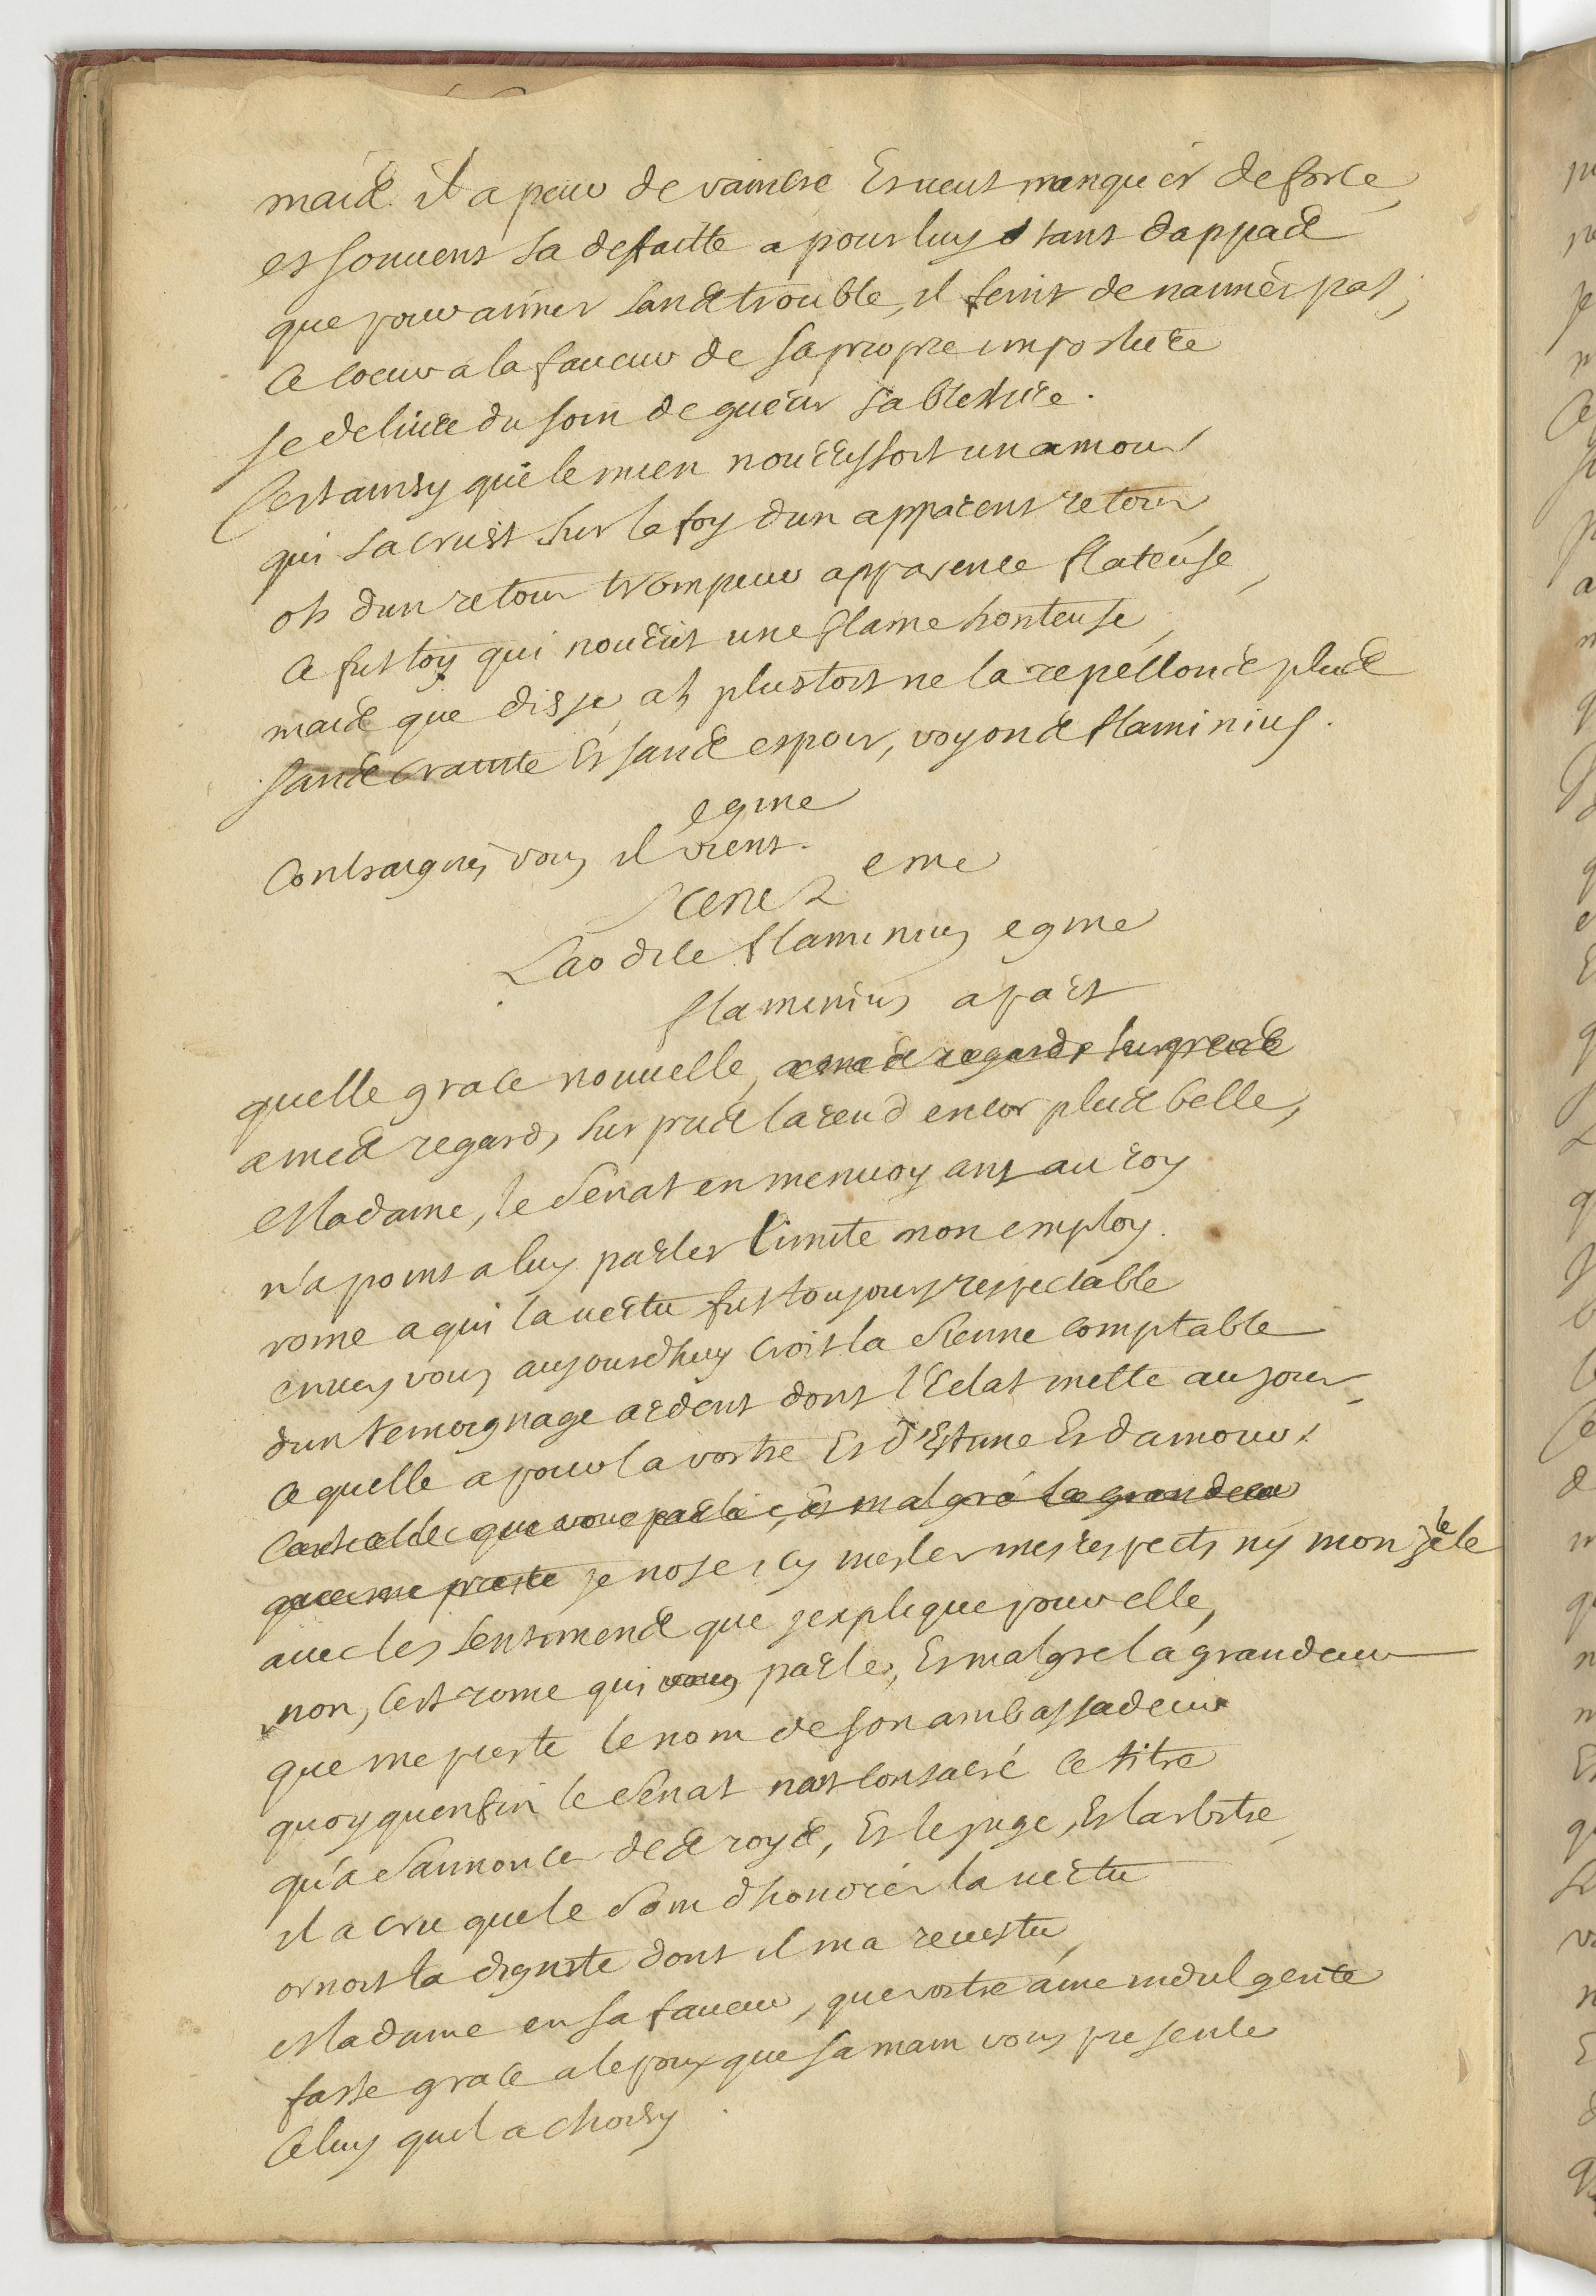 mais il a peur de vaincre Et veut manquer de force,
et souvent sa defaitte a pour luy tant dappas
que pour aimer sans trouble, il feint de naimer pas,
ce coeur a la faveur de sa propre imposture
se delivre du soin de guerir sa blessure.
Cest ainsy que le mien nourrissoit un amour
qui sacruet sur la foy dun apparent retour
oh dun retour trompeur apparence flateuse,
ce fut toy qui nourrit une flame honteuse,
mais que dis je, ah plustost ne la rapellons plus
sans crainte Et sans espoir, voyons flaminius.
egine
Contraignés vous il vient.
Scene 2 eme
Laodice flaminius egine
flaminius apart
quelle grace nouvelle, a mes regards surpris
a mes regards surpris la rend encor plus belle,
Madame, le Senat en menvoyant au roy
n'a point a luy parler limité mon employ.
rome a qui la vertu fut toujours respectable
envers vous aujourdhuy croit la Sienne comptable
dun temoignage ardent dont l'Eclat mette au jour
ce quelle a pour la vostre Et d'Estime Et damour.
Cest celle que vous parle, et malgré la grandeur
que me preste je nose icy mesler mes respects ny mon zele
avec les sentimens que jexplique pour elle,
non, cest rome qui vous parle, Et malgré la grandeur
que me preste le nom de son ambassadeur
quoy quenfin le Senat nait consacré ce titre
qu'a Sannoncer des roys, Et le juge, Et larbitre,
il a cru que le Soin dhonorer la vertu
ornoit la dignité dont il ma revestu,
Madame en sa faveur, que vostre ame indulgente
fasse grace a lepoux que sa main vous presente
celuy quil a choisy